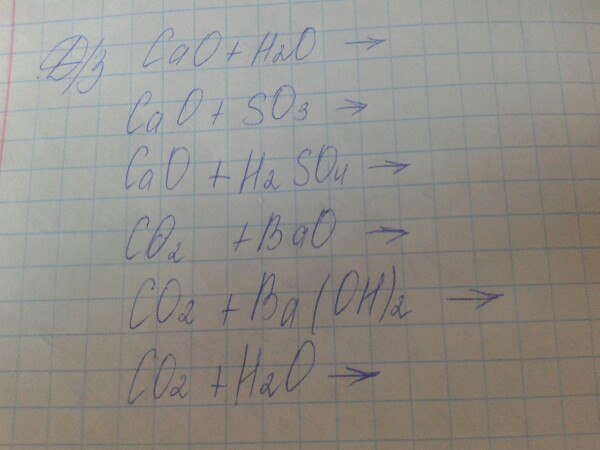 Д/з CaO + H₂O →
CaO + SO₃ →
CaO + H₂SO₄ →
CO₂ + BaO →
CO₂ + Ba(OH)₂ →
CO₂ + H₂O →